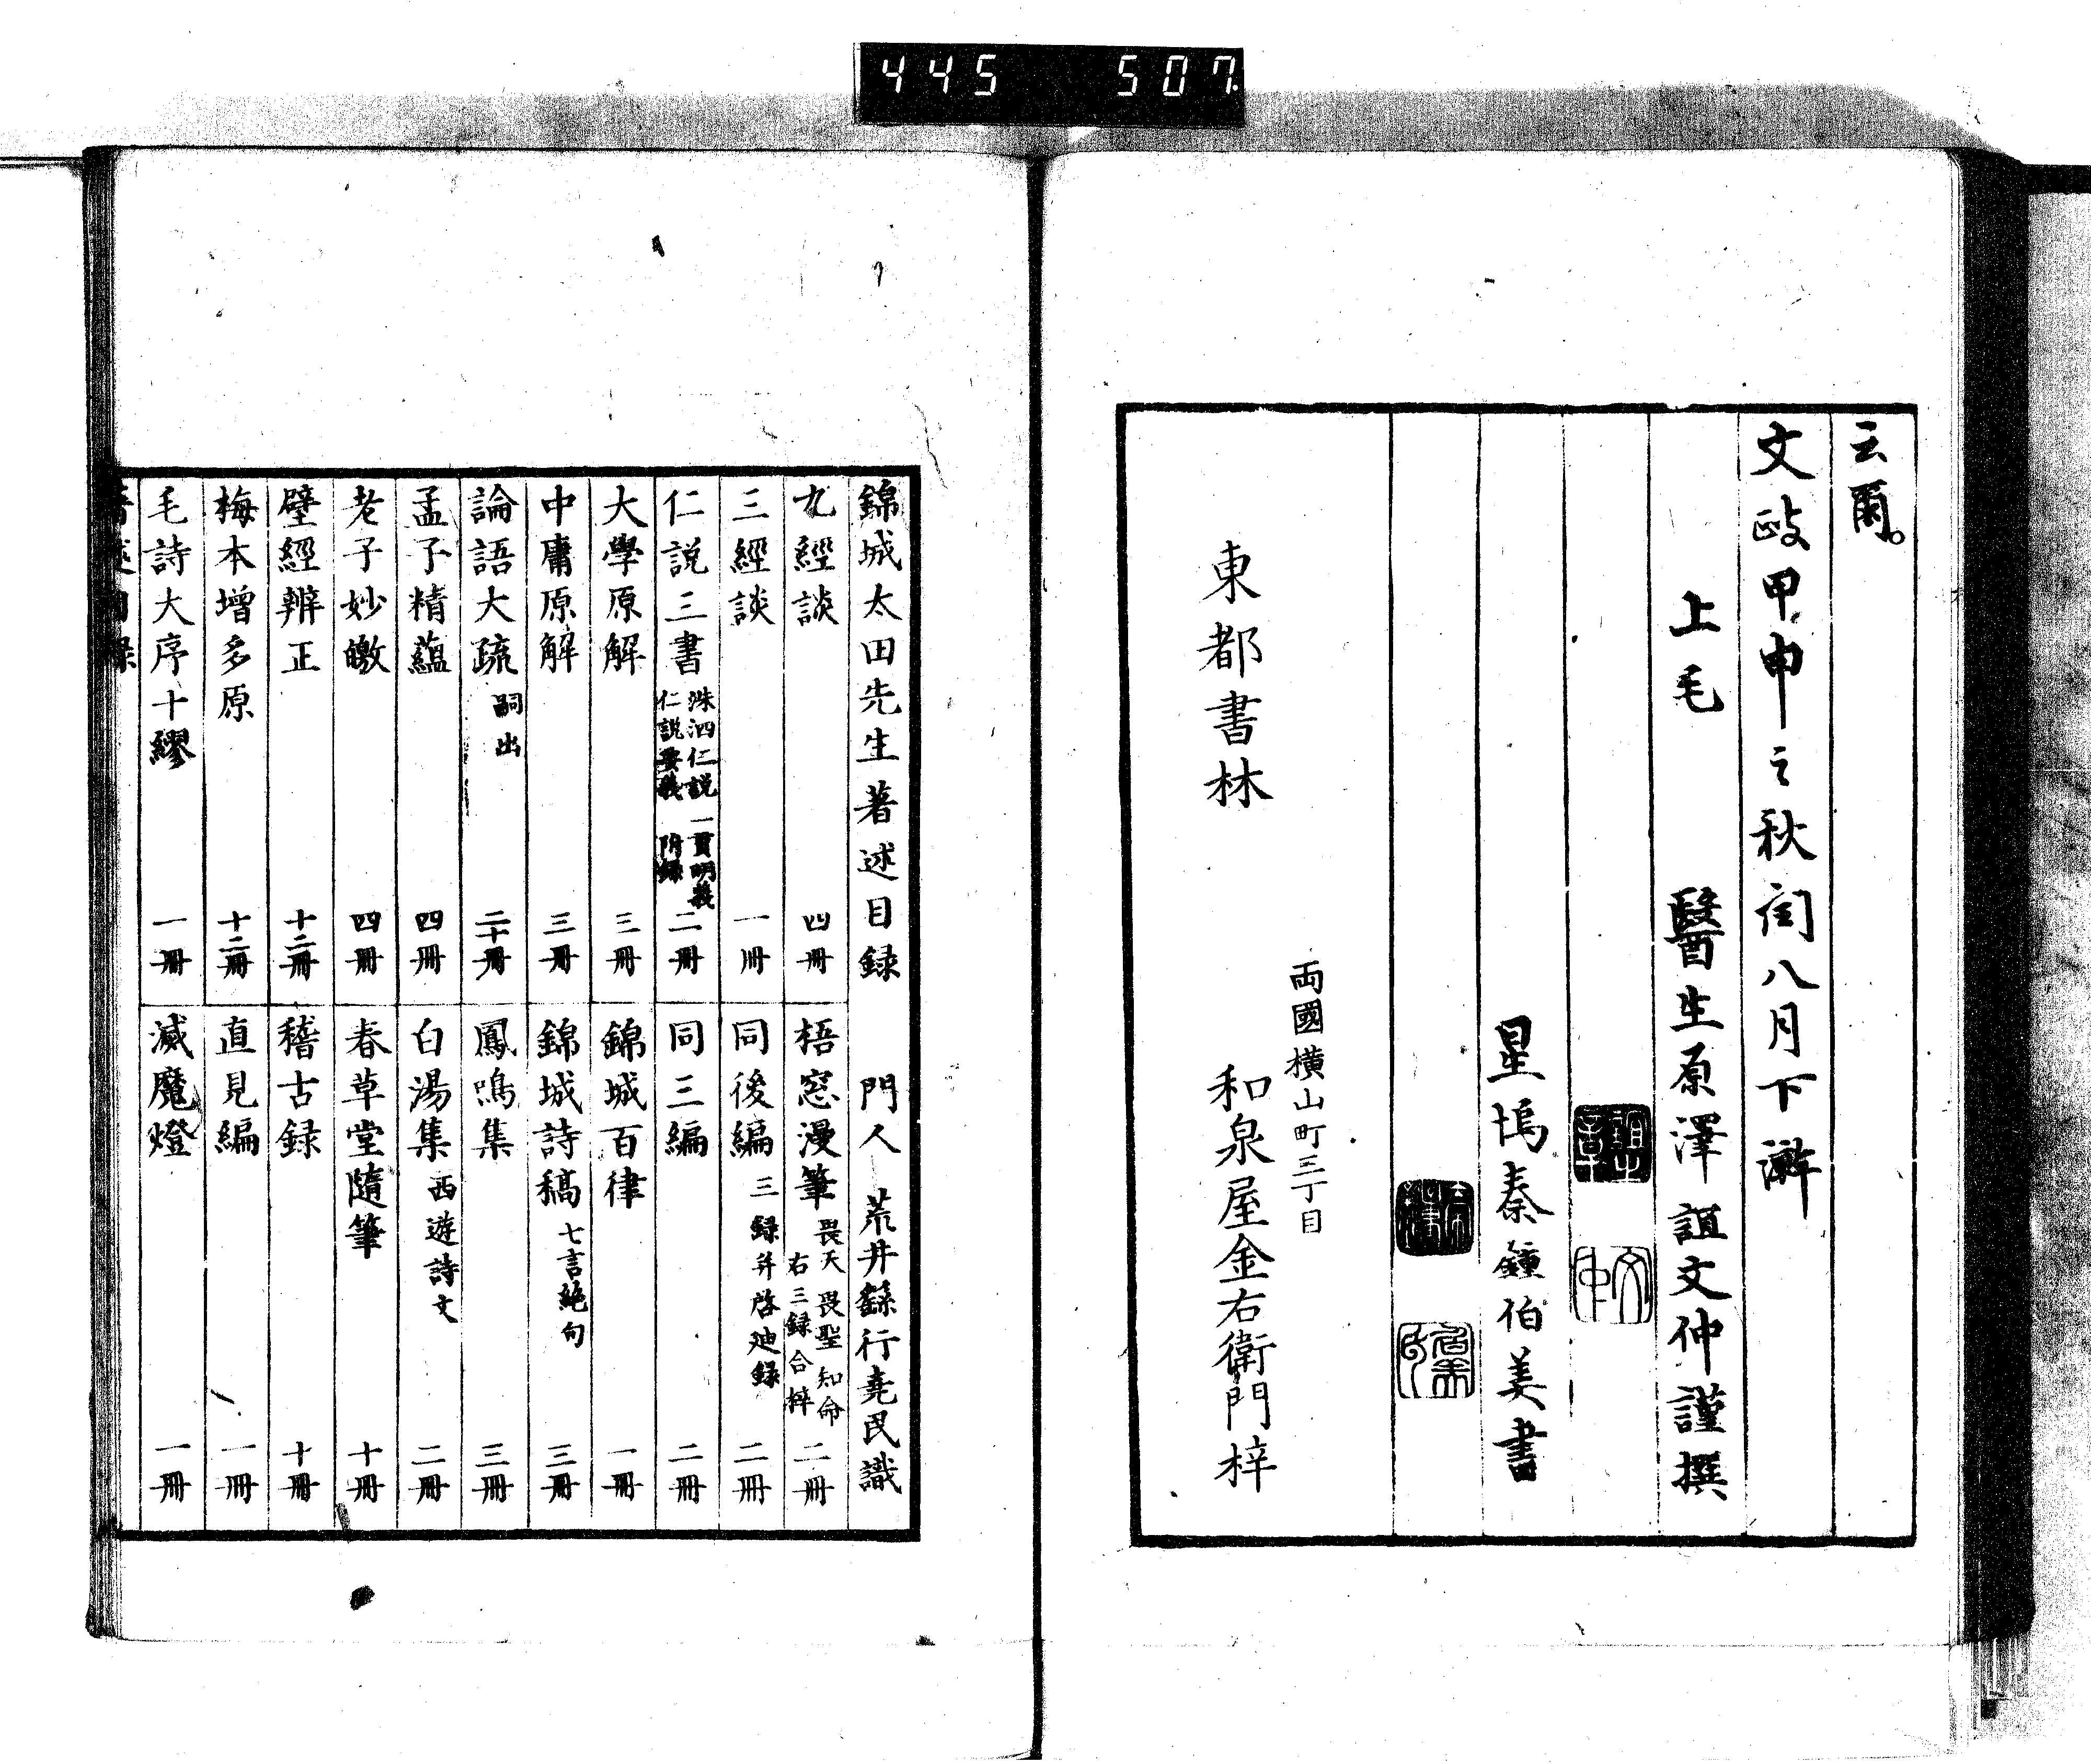 445 507
云爾。
文政甲申之秋閏八月下澣
上毛 醫生原澤誼文仲謹撰
星塢秦鍾伯美書
東都書林
兩國橫山町三丁目
和泉屋金右衛門梓
錦城太田先生著述目録 門人 荒井繇行堯民識
九經談 四冊
三經談 一冊
仁説三書 洙泗仁説 一貫明義 仁説要義 附録 二冊
大學原解 三冊
中庸原解 三冊
論語大疏 嗣出 二十冊
孟子精蘊 四冊
老子妙皦 四冊
壁經辨正 十二冊
梅本增多原 十二冊
毛詩大序十繆 一冊
梧窓漫筆 畏天 畏聖 知命 右三録合梓 二冊
同後編 三録并啓迪録 二冊
同三編 二冊
錦城百律 一冊
錦城詩稿 七言絶句 三冊
鳳鳴集 三冊
白湯集 西遊詩文 二冊
春草堂隨筆 十冊
稽古録 十冊
直見編 一冊
滅魔燈 一冊